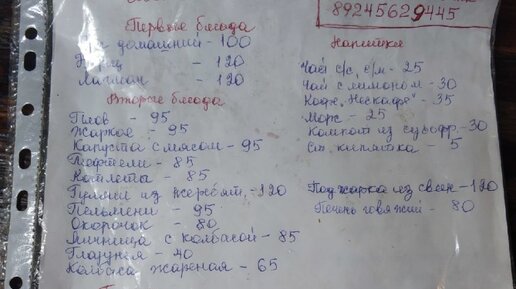 89245629445
Первые блюда
домашний - 100
Борщ - 120
Лагман - 120
Вторые блюда
Плов - 95
Жаркое - 95
Капуста с мясом - 95
Тефтели - 85
Котлеты - 85
Гуляш из жеребят. - 120
Пельмени - 95
Окорочок - 80
Яичница с колбасой - 85
Глазунья - 40
Колбаса жареная - 65
Напитки
Чай с/с, с/м - 25
Чай с лимоном - 30
Кофе "Нескафе" - 35
Морс - 25
Компот из сухофр. - 30
Ст. кипятка - 5
Поджарка из свин - 120
Печень говяжий - 80